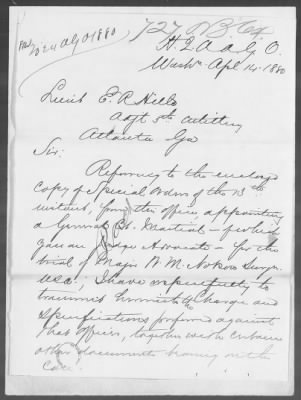 H. Q. A. A. G. O.
Wash'n Apl 14. 1880
Lieut E. R. Hills
Adjt 5th Artillery
Atlanta Ga
Sir:
Referring to the enclosed
copy of Special Orders of the 13th
instant, from this office, appointing
a General Ct. Martial - for which
you are Judge Advocate - for the
trial of Major
U.S.A.; I have respectfully to
transmit herewith Charge and
Specifications against
that officer, together with
other documents having
case.